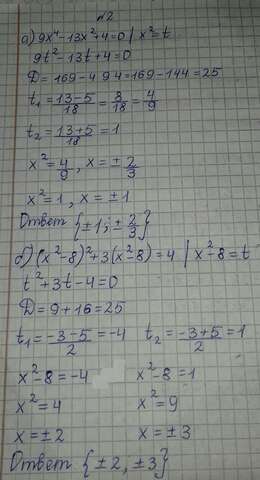 №2
а) 9x⁴-13x²+4=0 / x²=t
9t²-13t+4=0
D=169-4·9·4=169-144=25
t₁=(13-5)/18=8/18=4/9
t₂=(13+5)/18=1
x²=4/9, x=±2/3
x²=1, x=±1
Ответ {±1; ±2/3}
б) (x²-8)²+3(x²-8)=4 / x²-8=t
t²+3t-4=0
D=9+16=25
t₁=(-3-5)/2=-4 t₂=(-3+5)/2=1
x²-8=-4 x²-8=1
x²=4 x²=9
x=±2 x=±3
Ответ {±2, ±3}